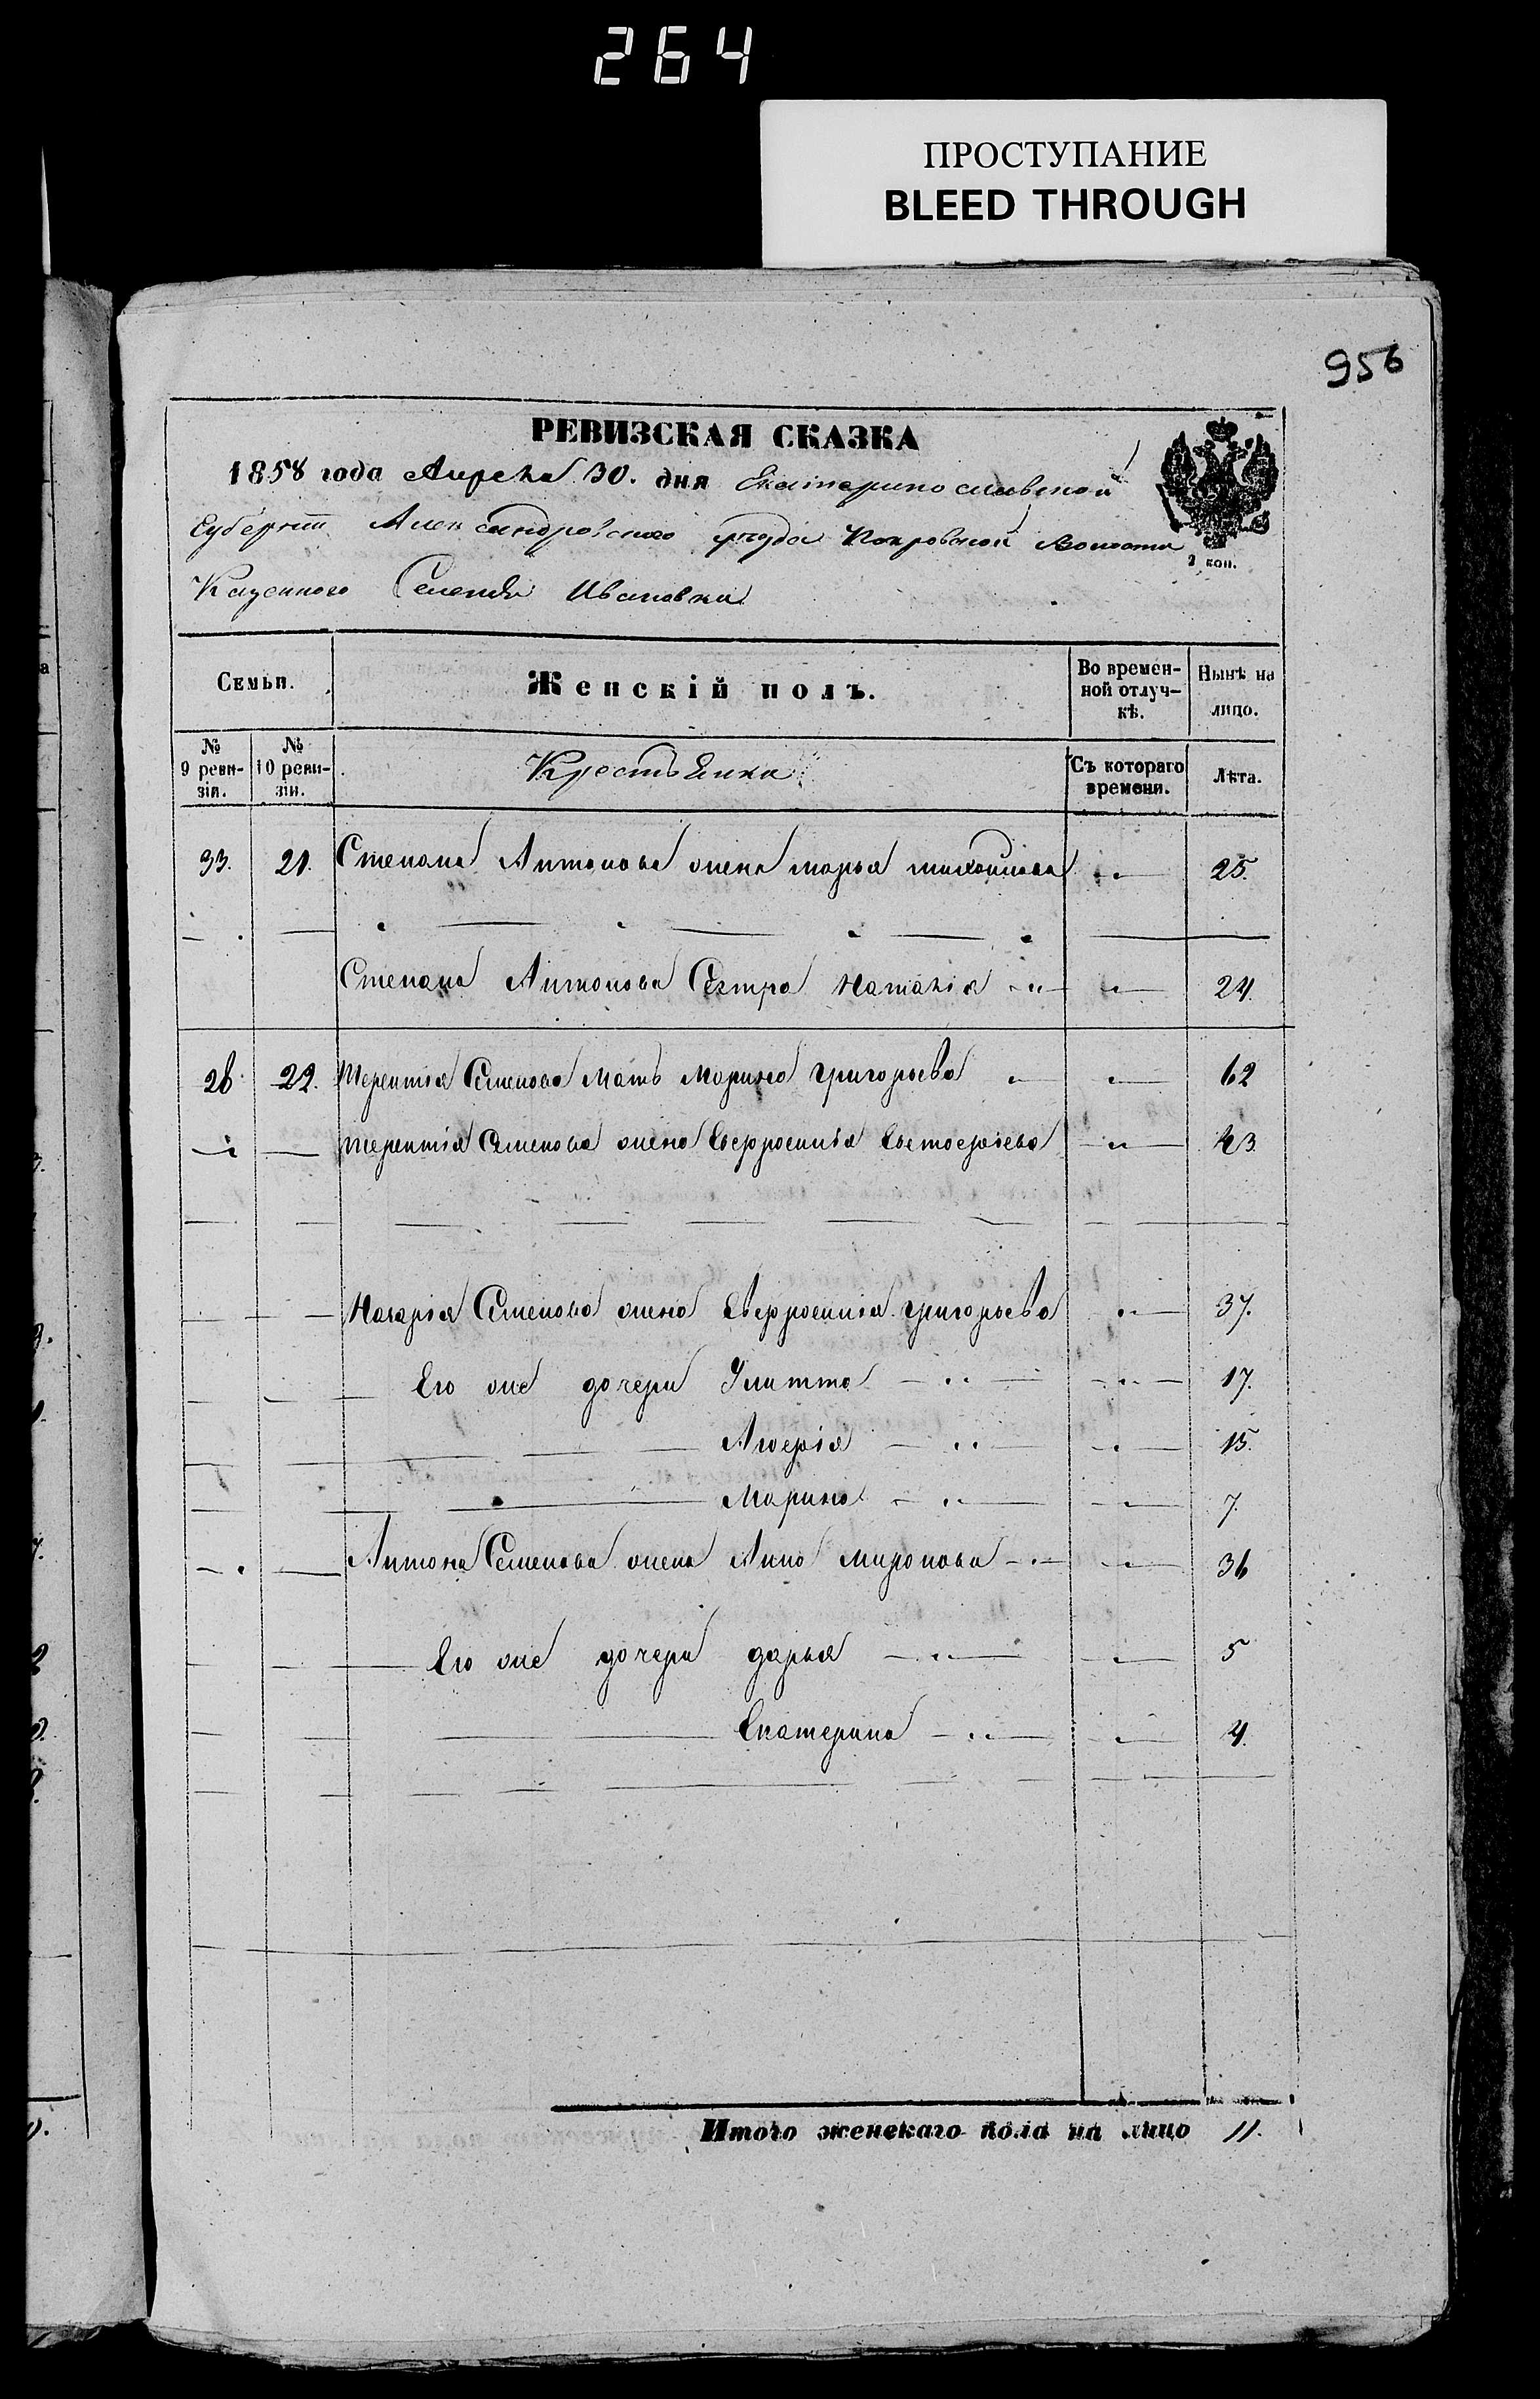 264
ПРОСТУПАНИЕ
BLEED THROUGH
956
РЕВИЗСКАЯ СКАЗКА
1858 года Апреля 30. дня Екатеринославской
Губернии Александровского уезда Покровской Волости
2 коп.
Казенного Селения Ивановки
Семьи. Женскій полъ. Во времен-ной отлуч-кѣ. Нынѣ на лицо.
№ 9 реви-зіи. № 10 реви-зіи. Крестьяни Съ котораго времени. Лѣта.
33. 21. Степана Антонова жена марья михайлова 25.
Степана Антонова Сестра Наталія 24.
28. 22. Терентія Семенова Мать Марина григорьева 62
Терентія Семенова жена Евфросинія 43.
Назарія Семенова жена Евфросинія григорьева 37.
Его же дочери Улитта 17.
15.
Марина 7.
Антона Семенова жена Анна миронова 36
Его же дочери дарья 5
Екатерина 4.
Итого женскаго пола на лицо 11.